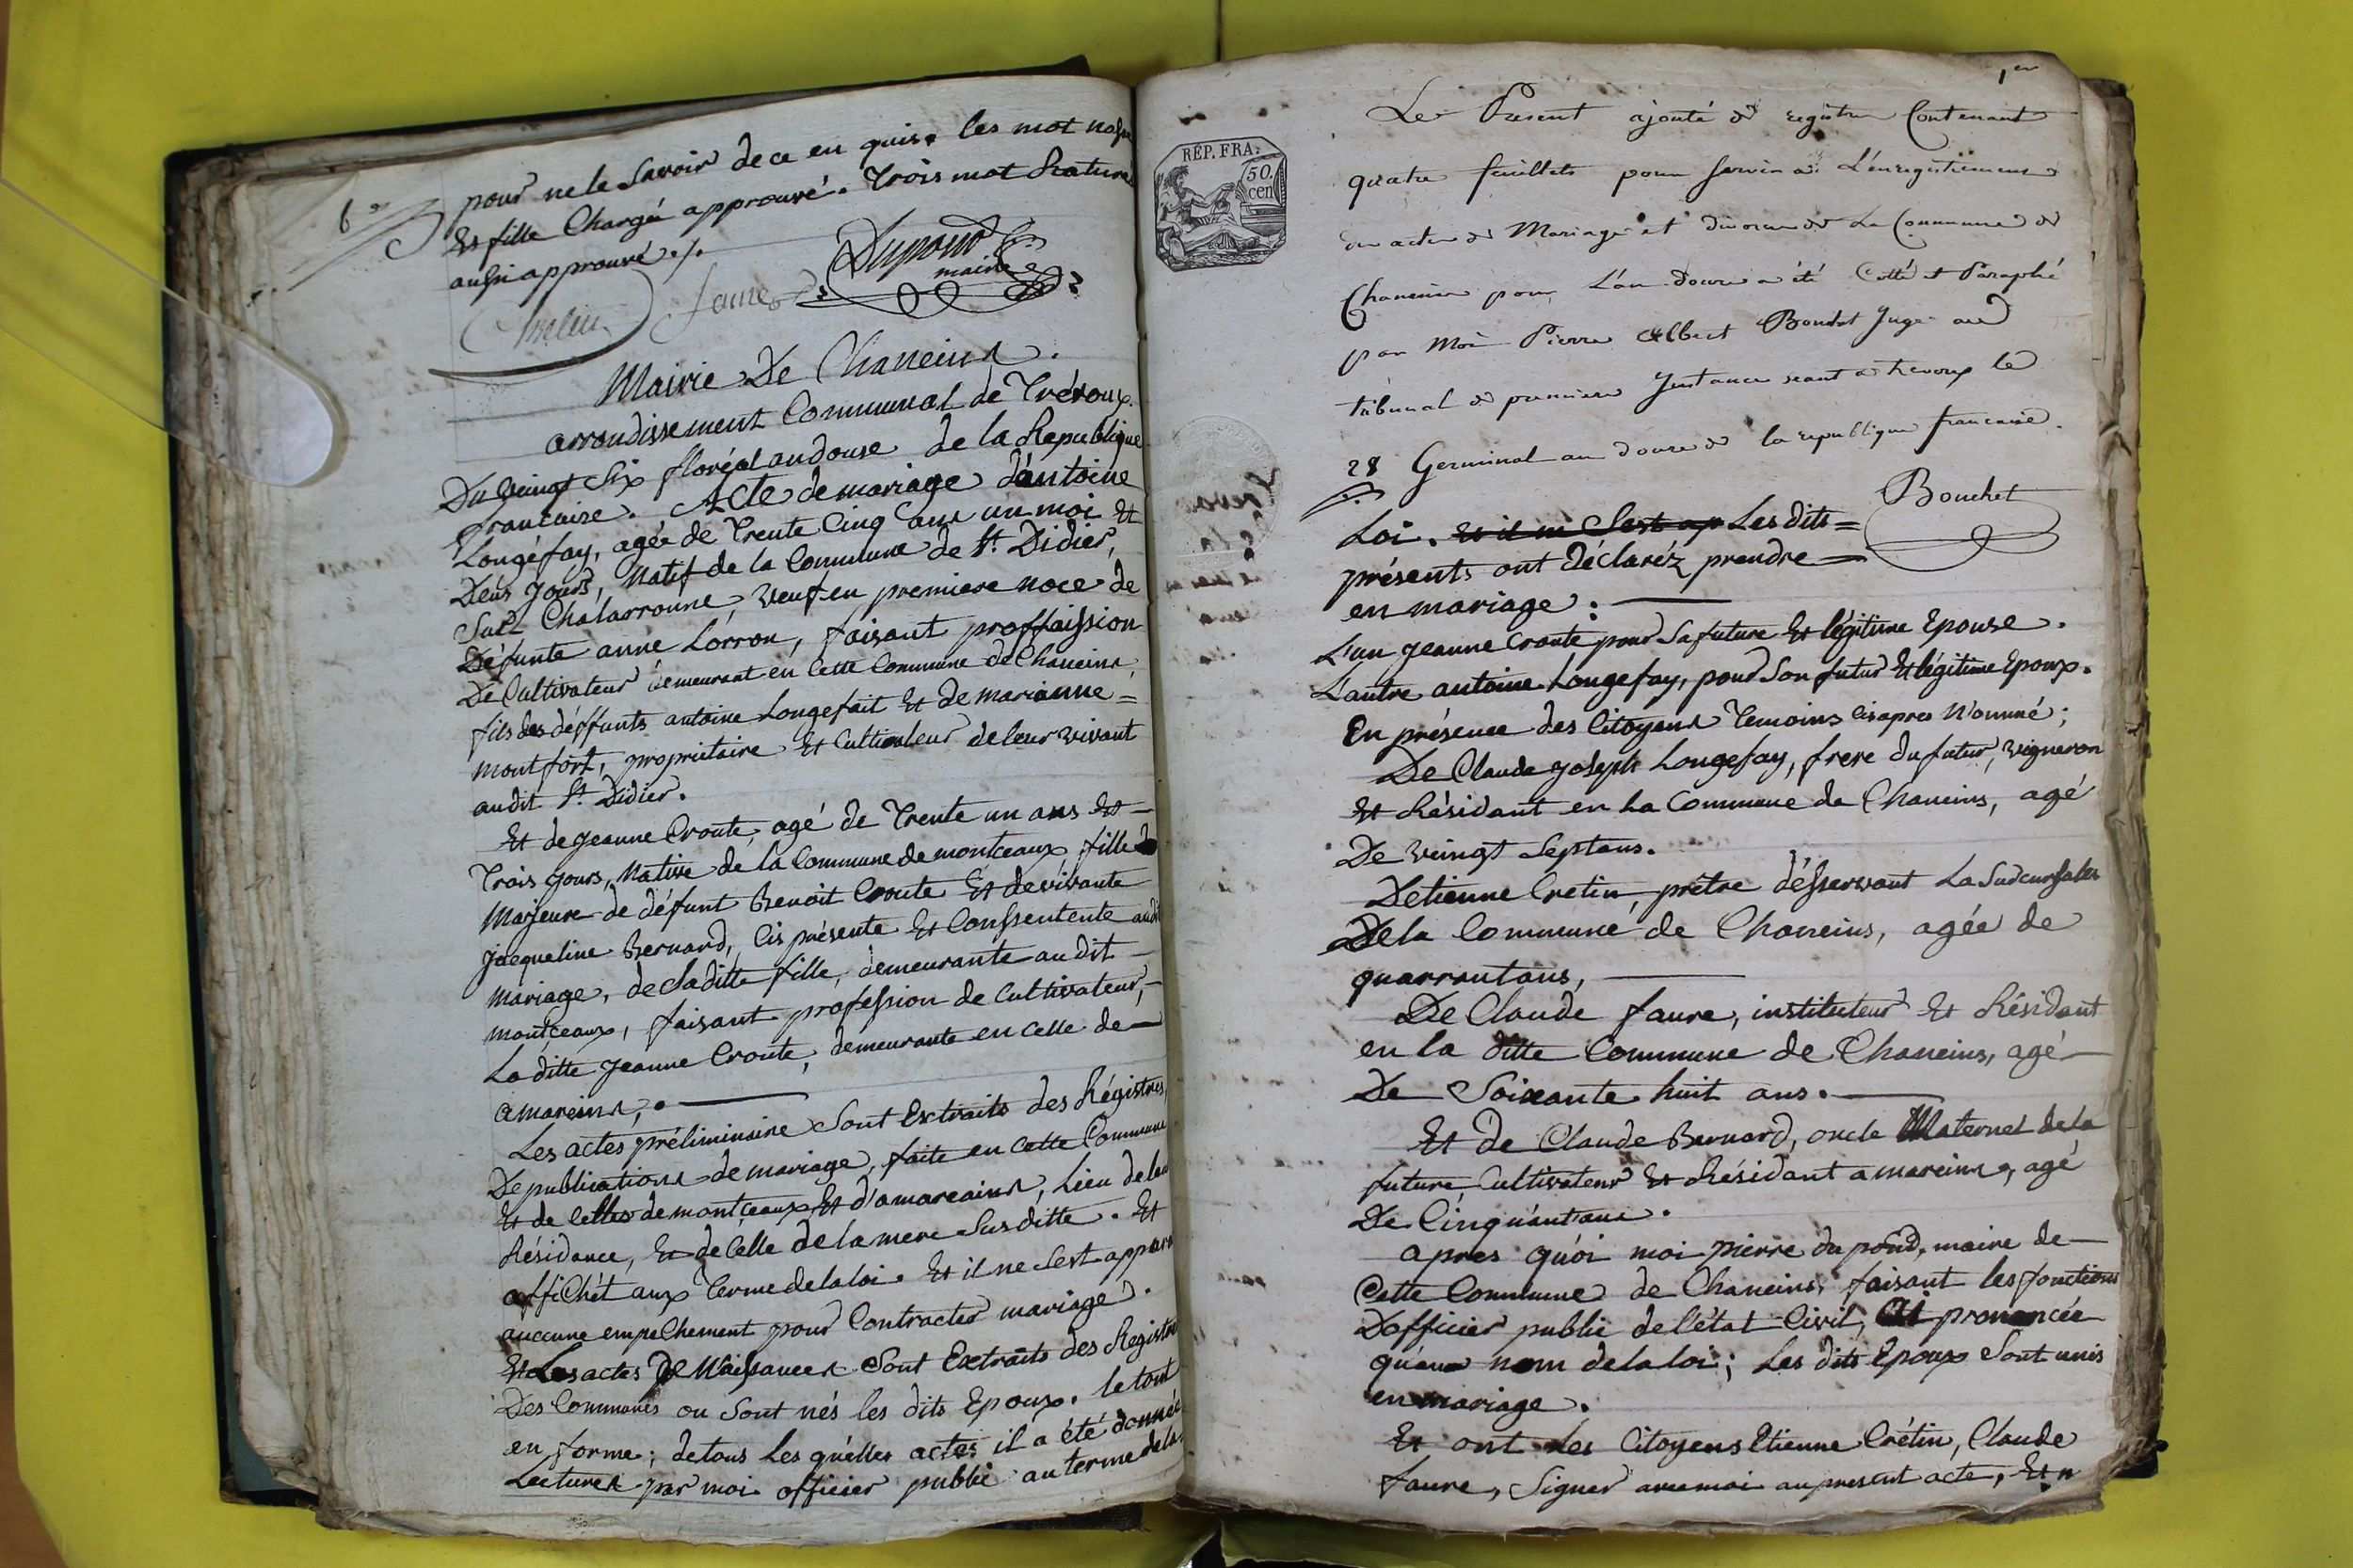 6e
pour ne le Savoir de ce en quis. les mot
Et fille Chargée approuvé. Trois mot Raturé
aussi approuvé ./.
Dupond
maire
Cretin
faure
Mairie De Chaneins.
arrondissement Communal de Trévoux.
Du vingt Six floréal an douse de la Republique
francaise. Acte de mariage d'antoine
Longéfay, agée de Trente Cinq ans un moi Et
Deus Jours, Natif de la Commune de St. Didier,
Sur Chalarronne, veuf en premiere noce de
Défunte anne Lorron, faisant proffaission
De Cultivateur demeurant en Cette Commune de Chaneins,
fils des déffunts antoine Longefait Et de marianne =
montfort, propriétaire Et Cultivateur de leur vivant
au dit St. Didier.
Et de jeanne Croute, agé de Trente un ans Et
Trois jours, Native de la Commune de montceaux, fille
Majeure de défunt Benoit Croute Et de vivante
Jacqueline Bernard, Cis présente Et Conssentente audit
mariage, de Saditte fille, demeurante au dit
montceaux, faisant profession de Cultivateur,
La ditte Jeanne Croute, demeurante en Celle de
amareins, .
Les actes préliminaire Sont Extraits des Régistres,
De publications de mariage, faite en Cette Commune
Et de Celles de montceaux Et d'amareains, Lieu de leur
Résidance, Et de Celle de la mere Sus ditte. Et
affiChét aux Terme de la loi. Et il ne Sest apparu
auccune empeChement pour Contracter mariage.
Et Les actes De Naissances Sont Extraits des Registres
Des Communes ou Sont nés les dits Epoux. le tout
en forme; de tous Les quélles actes il a été donnée
Lectures par moi officier public au terme de la
1er
Le Present ajouté de registre Contenant
quatre feuillets pour servir à L'enregistrement
des actes de Mariage et divorce de La Commune de
Chaneins pour L'an douze a été Cotté et Paraphé
par Moi Pierre Albert Boudet Juge au
tribunal de premiere Instance seant a trevoux le
28 Germinal an douze de la republique francaise.
Bouchet
REP. FRA.
50.
cen
Loi. Et il ne Sest ap Les dits =
présents ont déClaréz prendre =
en mariage :
L'un jeanne Croute pour Sa future Et légitime Epouse.
L'autre antoine Longefay, pour Son futur Et légitime Epoux.
En présence des Citoyens Temoins Cis apres Nommé;
De Claude joseph Longefay, frere du futur, vigneron
Et Résidant en la Commune de Chaneins, agé
De vingt Sept ans.
Detienne Cretin, prétre désservant La Surcursales
De la Commune de Chaneins, agée de
quarrantans,
De Claude faure, instituteur Et Résidant
en la ditte Commune de Chaneins, agé
De Soixante huit ans.
Et de Claude Bernard, oncle Maternel de la
future, Cultivateur Et Résidant a mareins, agé
De Cinquantans.
apres quoi moi Pierre du pond, maire de
Cette Commune de Chaneins, faisant les fonctions
D'officier public de l'état Civil, Ai prononcée
qu'au nom de la loi; Les dits Epoux Sont unis
en mariage.
Et ont les Citoyens Etienne Crétin, Claude
faure, Signer avec moi au present acte, Et n